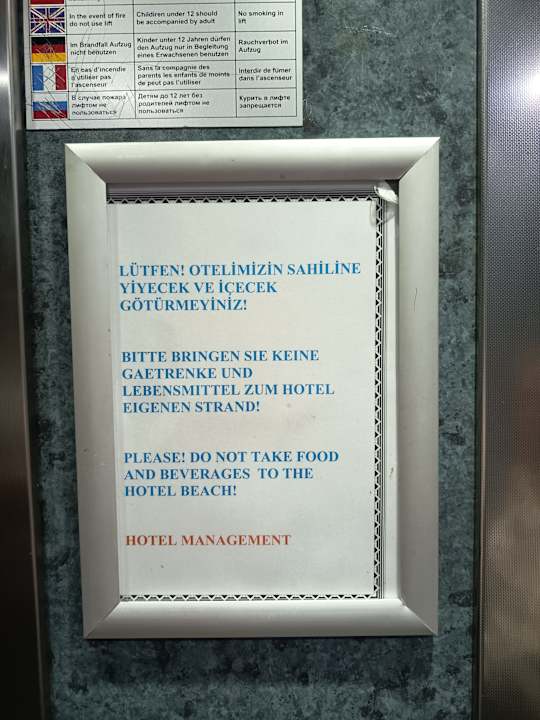 In the event of fire
do not use lift
Children under 12 should
be accompanied by adult
No smoking in
lift
Im Brandfall Aufzug
nicht benutzen
Kinder unter 12 Jahren dürfen
den Aufzug nur in Begleitung
eines Erwachsenen benutzen
Rauchverbot im
Aufzug
En cas d'incendie
n'utiliser pas
l'ascenseur
Sans la compagnie des
parents les enfants de moints
de peut pas l'utiliser
Interdir de fumer
dans l'ascenseur
В случае пожара
лифтом не
пользоваться
Детям до 12 лет без
родителей лифтом не
пользоваться
Курить в лифте
запрещается
LÜTFEN! OTELİMİZİN SAHİLİNE
YİYECEK VE İÇECEK
GÖTÜRMEYİNİZ!
BITTE BRINGEN SIE KEINE
GAETRENKE UND
LEBENSMITTEL ZUM HOTEL
EIGENEN STRAND!
PLEASE! DO NOT TAKE FOOD
AND BEVERAGES TO THE
HOTEL BEACH!
HOTEL MANAGEMENT